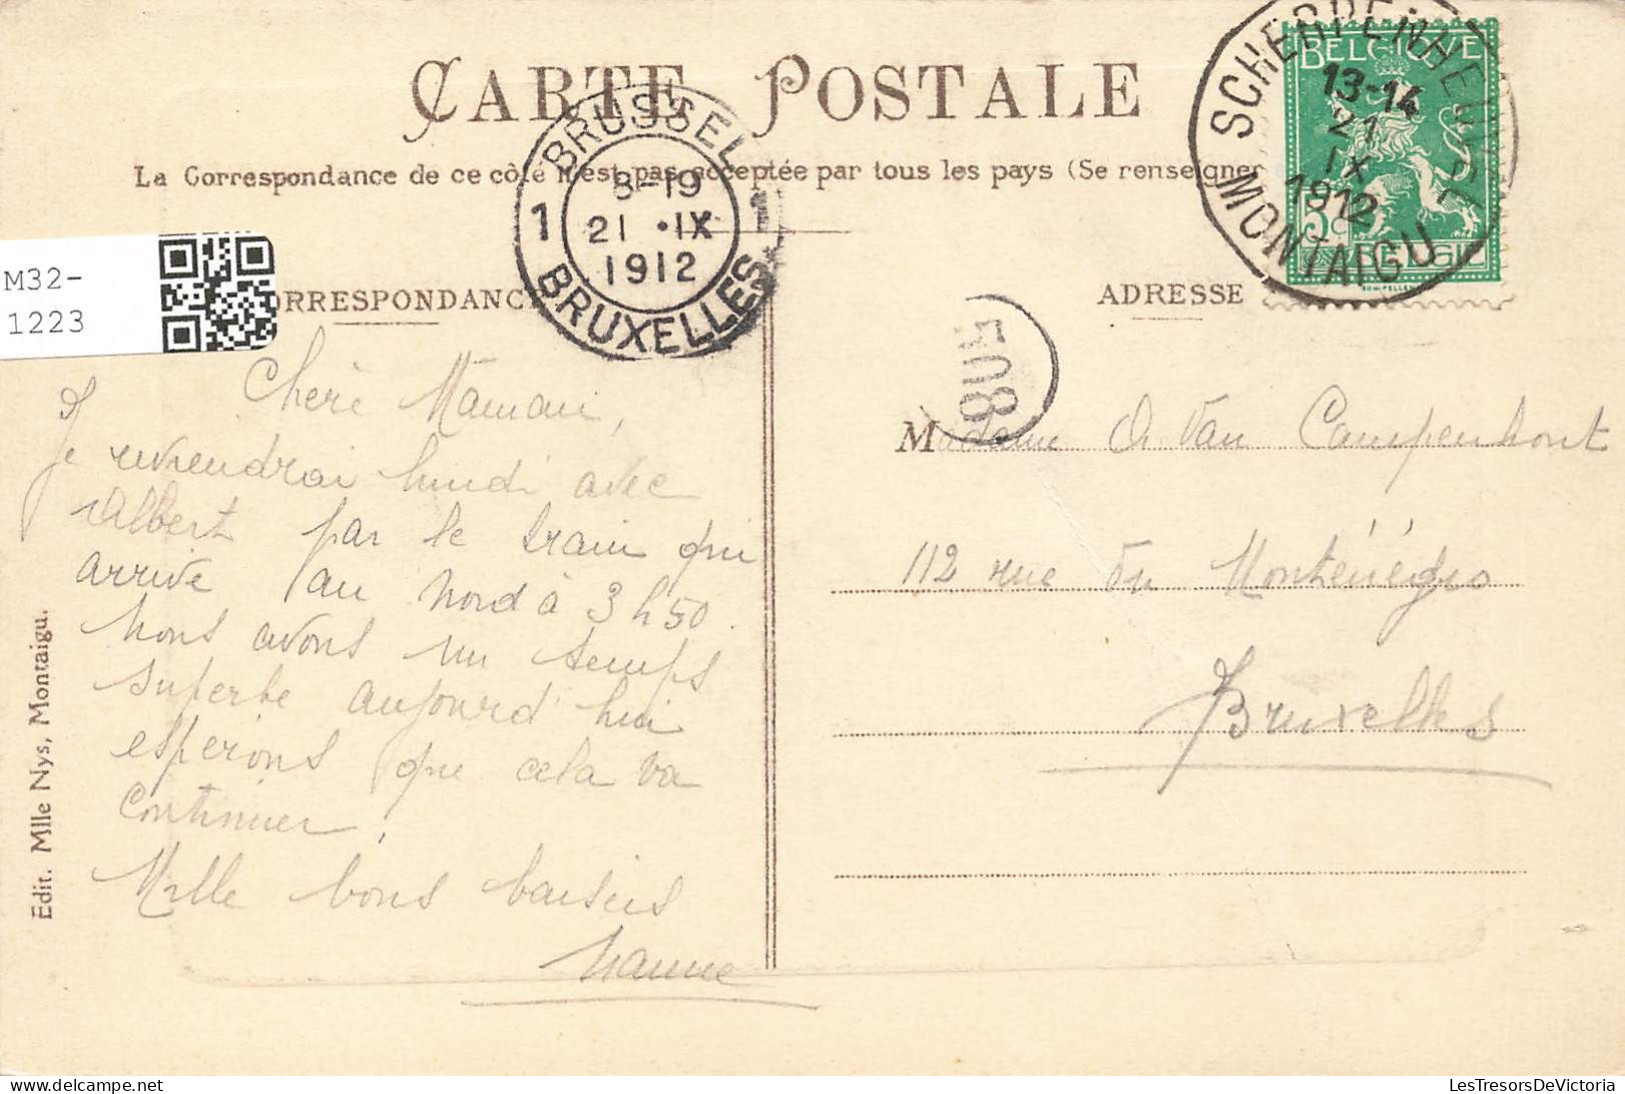 CARTE POSTALE
La Correspondance de ce côté n'est pas acceptée par tous les pays (Se renseigner
BRUSSEL
8-19
1 21 •IX 1
1912
BRUXELLES
SCHERPENHEUVEL
13-14
21
IX
1912
MONTAIGU
BELGIQUE
5c
BELGIË
M32-
1223
ORRESPONDANC
ADRESSE
Chère Maman,
Je reviendrai lundi avec
Albert par le train qui
arrive au Nord à 3 h 50.
Nous avons un temps
superbe aujourd'hui
esperons que cela va
continuer.
Mille bons baisers
Nanne
Madame Van Campenhout
112 rue du Monténégro
Bruxelles
Edit. Mlle Nys, Montaigu.
delcampe.net
LesTresorsDeVictoria